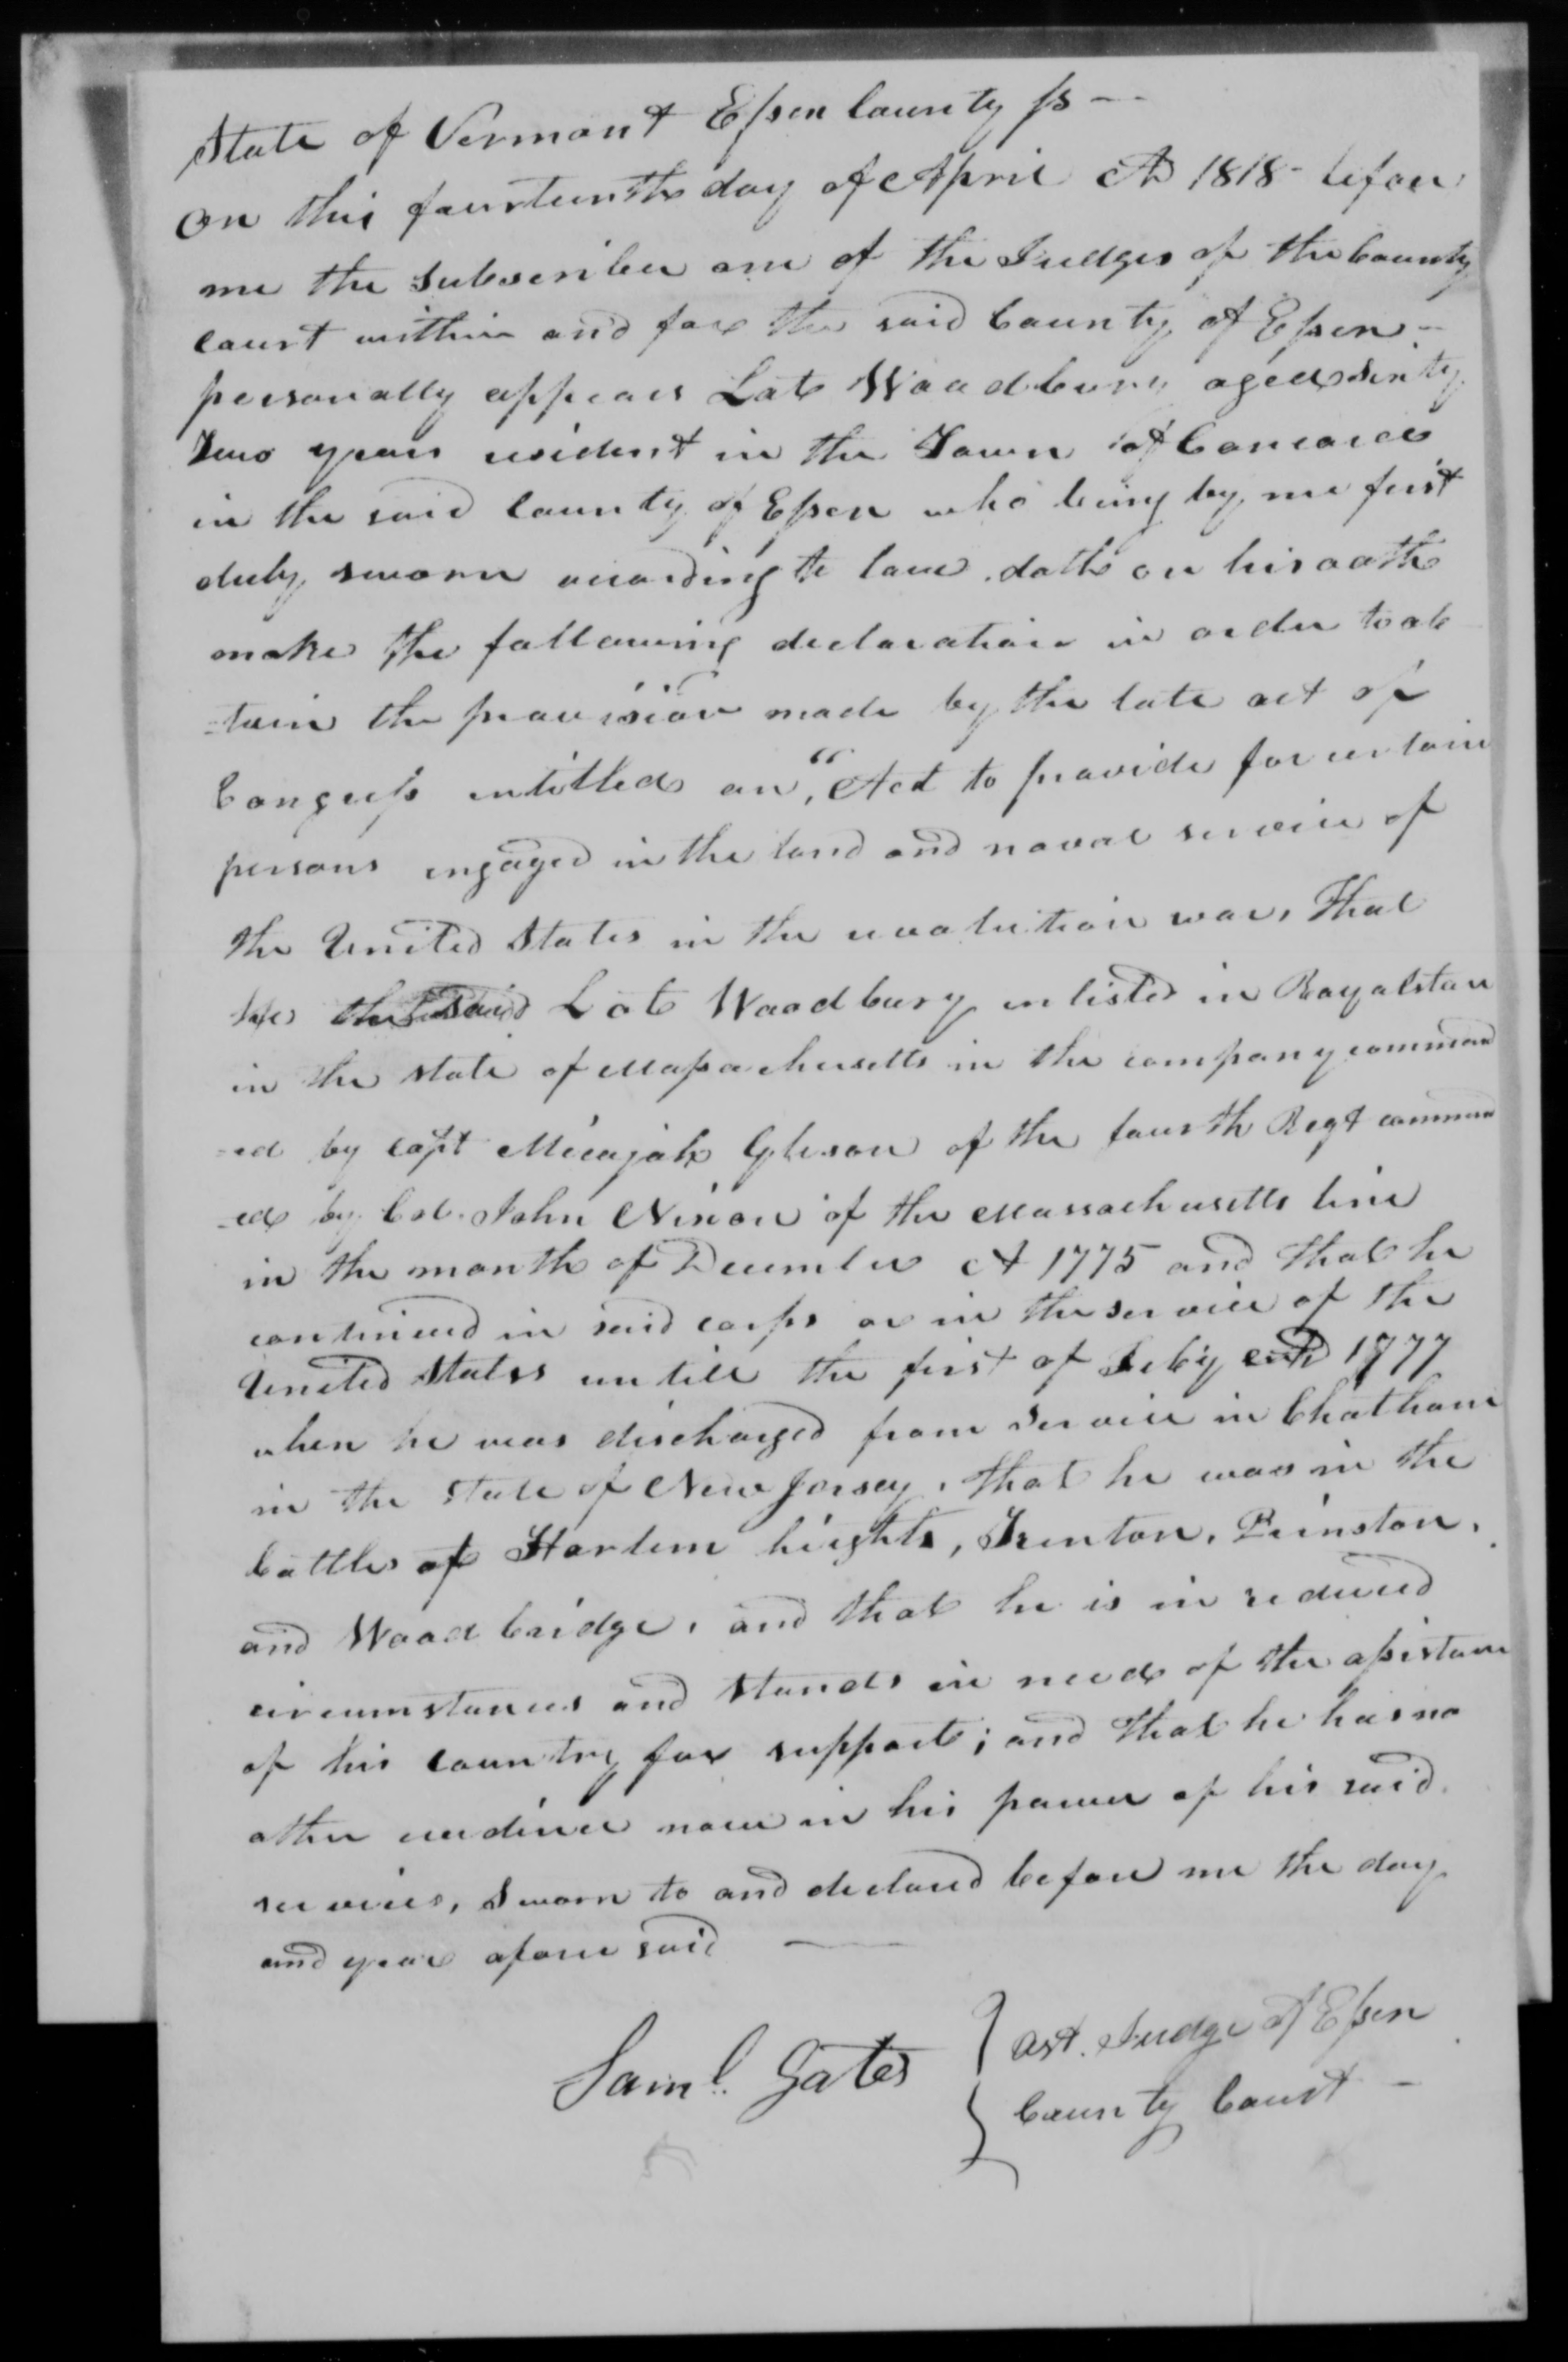 State of Vermont Essex County ss --
On this fourteenth day of April AD 1818 - before
me the subscriber one of the Judges of the County
court within and for the said County of Essex -
personally appears Lot Woodbury aged sixty
two years resident in the Town of Concord
in the said County of Essex who being by me first
duly sworn according to law doth on his oath
make the following declaration in order to ob
-tain the provision made by the late act of
Congress intitled an, "Act to provide for certain
persons engaged in the land and naval service of
the United States in the revolution war, That
he the said Lot Woodbury enlisted in Royalston
in the state of Massachusetts in the company command
-ed by Capt Micajah Gleson of the fourth Regt command
-ed by Col. John Nixon of the Massachusetts line
in the month of December A 1775 and that he
continued in said corps or in the service of the
United States untill the first of 1777
when he was discharged from service in Chatham
in the state of New Jersey, that he was in the
battles of Harlem heights, Trenton, Prinston,
and Woodbridge, and that he is in reduced
circumstances and stands in need of the assistance
of his country for support; and that he has no
other evidence now in his power of his said
services, Sworn to and declared before me the day
and year afore said —
Saml. Gates } Ast. Judge of Essex
County Court -